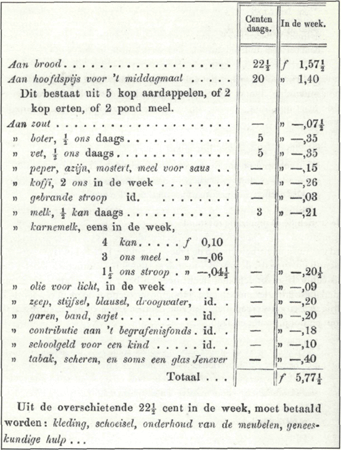 Centen daags. In de week.
Aan brood . . . . . . . . . . . . . . . . . . 22½ f 1,57½
Aan hoofdspijs voor 't middagmaat . . . . . 20 „ 1,40
Dit bestaat uit 5 kop aardappelen, of 2
kop erten, of 2 pond meel.
Aan zout . . . . . . . . . . . . . . . . . . — „ —,07½
„ boter, ½ ons daags . . . . . . . . . . 5 „ —,35
„ vet, ½ ons daags . . . . . . . . . . . 5 „ —,35
„ peper, azijn, mostert, meel voor saus . . — „ —,15
„ koffij, 2 ons in de week . . . . . . . . — „ —,26
„ gebrande stroop id. . . . . . . . . — „ —,03
„ melk, ½ kan daags . . . . . . . . . . . 3 „ —,21
„ karnemelk, eens in de week,
4 kan . . . . . f 0,10
3 ons meel . . „ —,06
1½ ons stroop . „ —,04½ — „ —,20½
„ olie voor licht, in de week . . . . . . . — „ —,09
„ zeep, stijfsel, blausel, droogwater, id. . . — „ —,20
„ garen, band, sajet . . . . . . . . id. . . — „ —,20
„ contributie aan 't begrafenisfonds . id. . . — „ —,18
„ schoolgeld voor een kind . . . . . id. . . — „ —,10
„ tabak, scheren, en soms een glas Jenever — „ —,40
Totaal . . . f 5,77½
Uit de overschietende 22½ cent in de week, moet betaald
worden: kleding, schoeisel, onderhoud van de meubelen, genees-
kundige hulp . . .